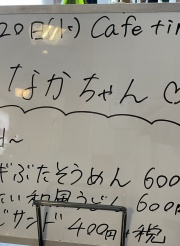 20日(水) Cafe tim
なかちゃん♡
~
ぶたそうめん 600
和風うどん 600円
サンド 400円+税